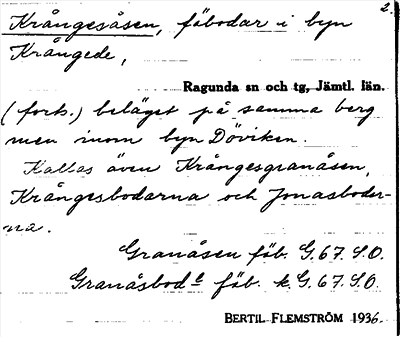 2.
Krångesåsen, fäbodar i byn
Krångede,
Ragunda sn och tg, Jämtl. län.
(forts.) beläget på samma berg
men inom byn Döviken.
Kallas även Krångesgranåsen,
Krångesbodarna och Jonasboder-
na.
Granåsen fäb. G.67.S.O.
Granåsbod.e fäb. k. G.67.S.O.
BERTIL FLEMSTRÖM 1936.